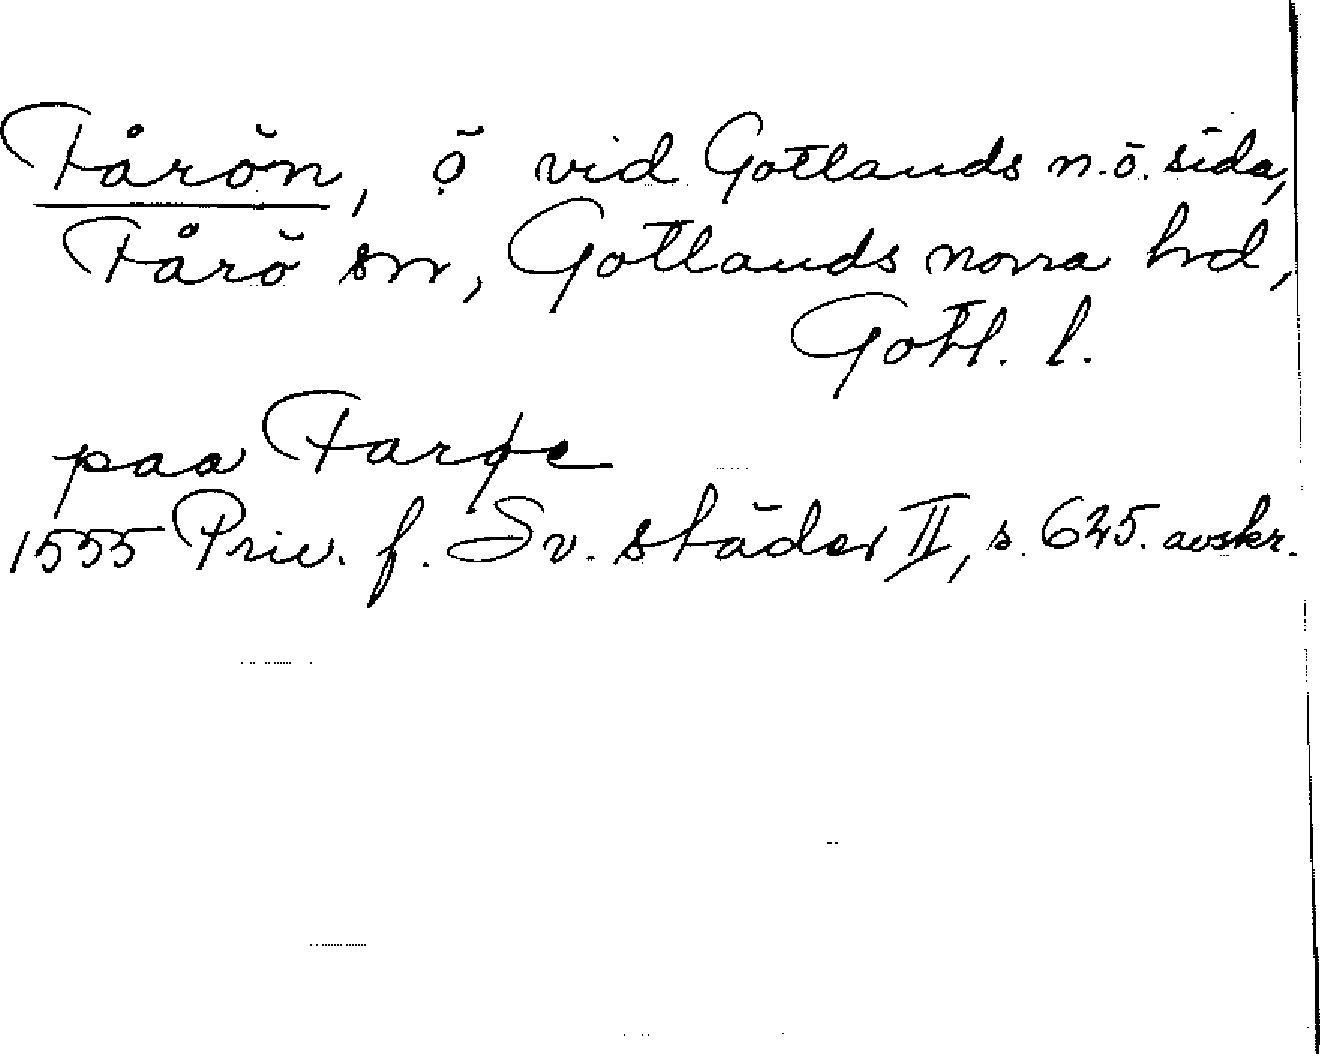 Fårön, ö vid Gotlands n.ö. sida,
Fårö sn, Gotlands norra hrd,
Gotl. l.
paa Farøe
1555 Priv. f. Sv. städer II, s. 625. avskr.